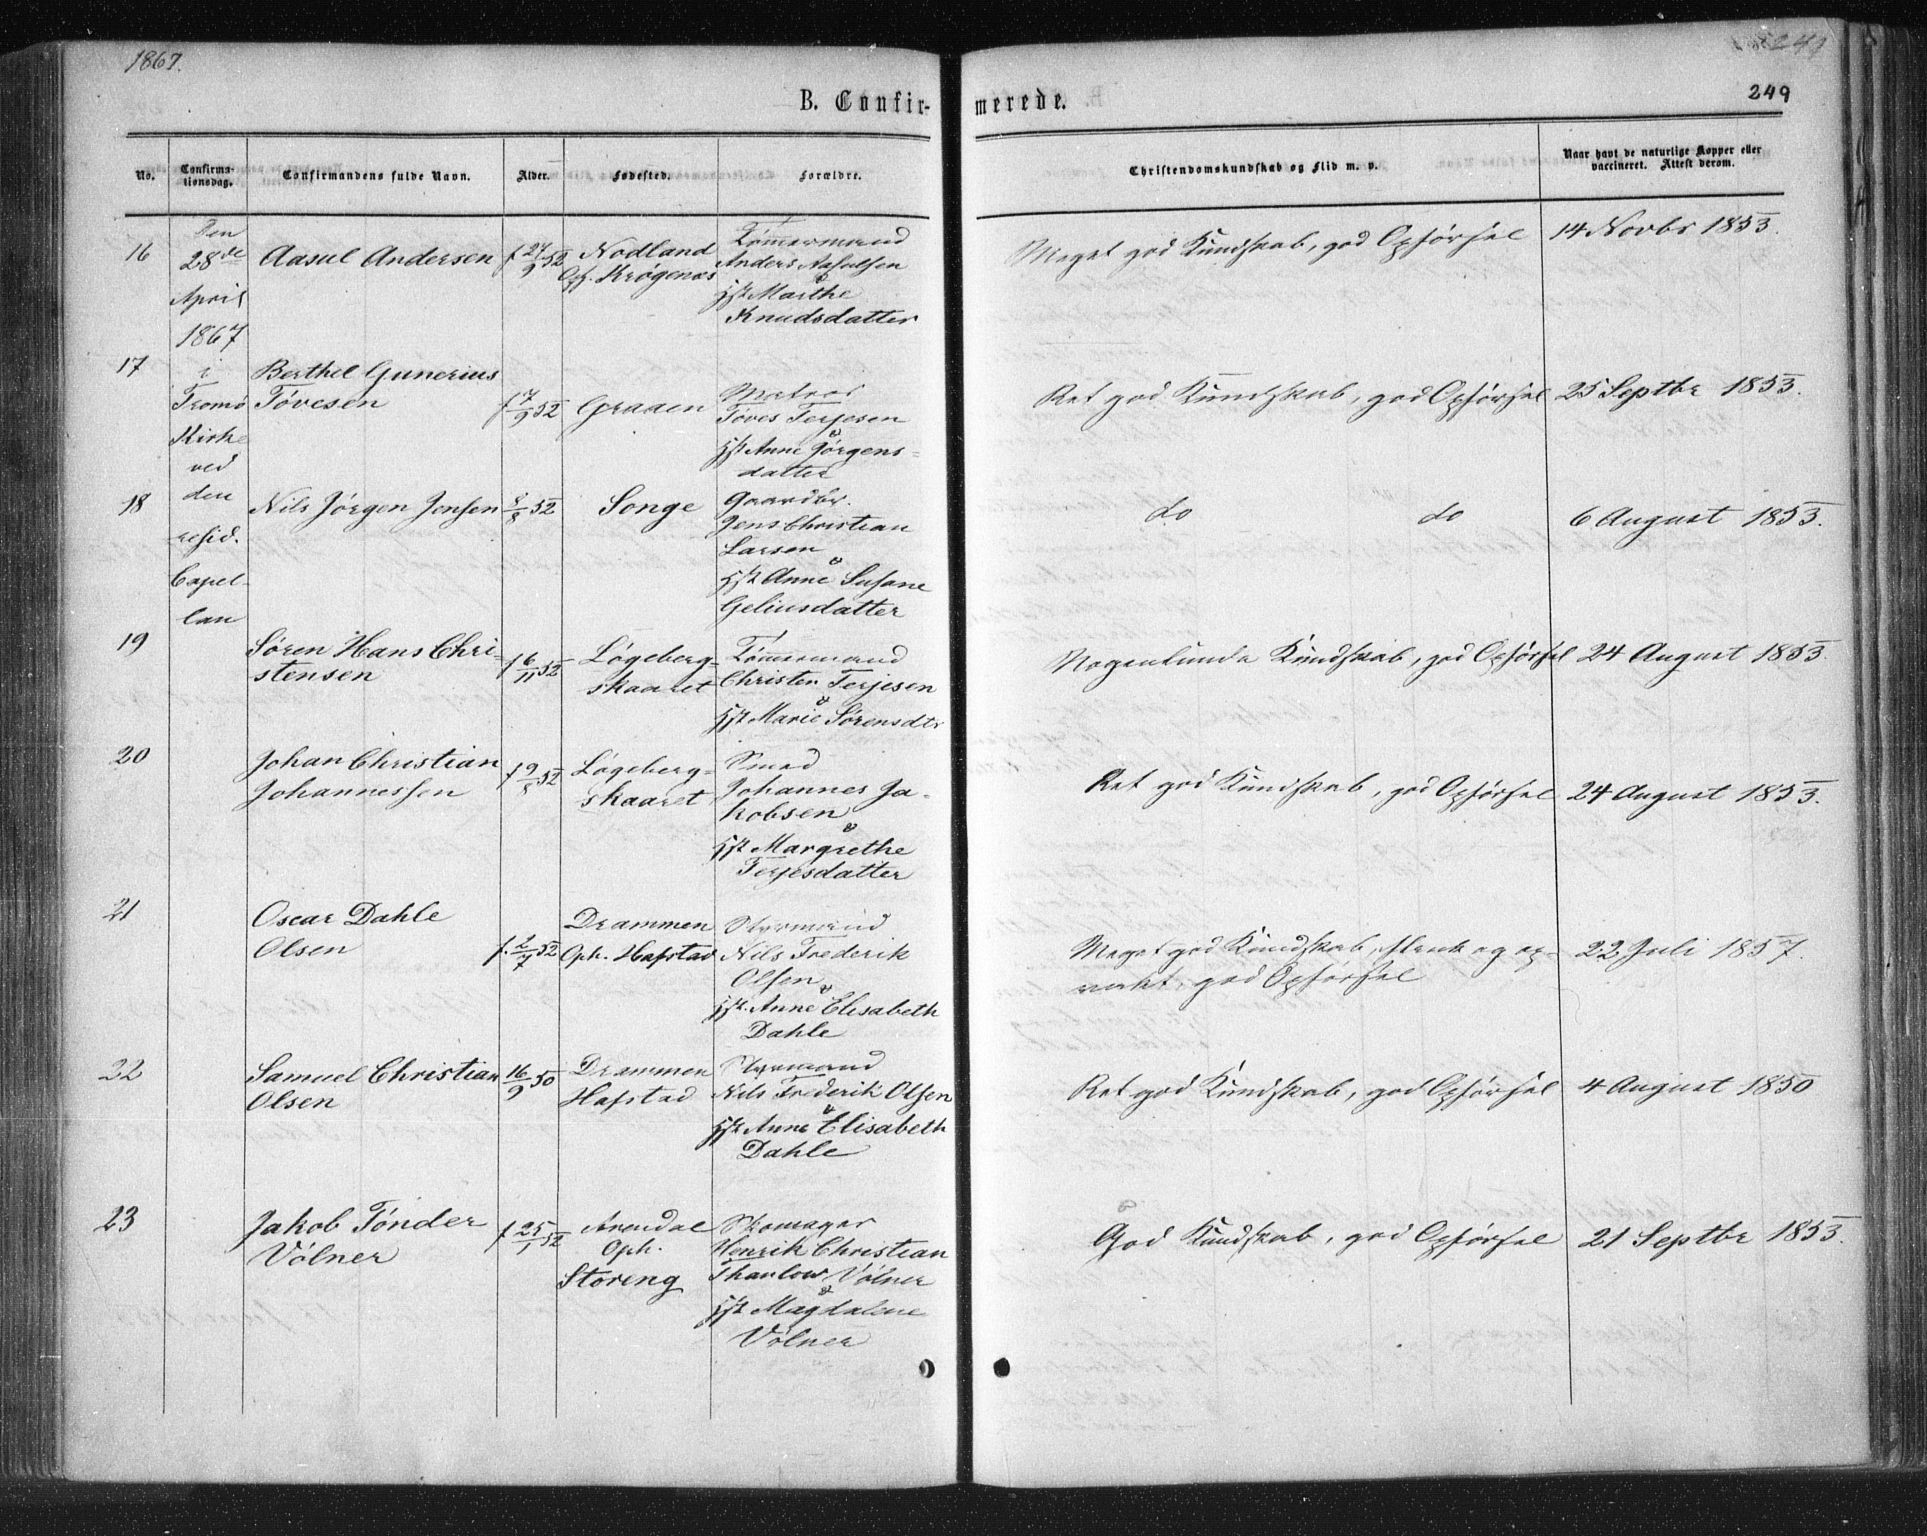 1867.
249
B. Confirmerede.
No. Confirmationsdag. Confirmandens fulde Navn. Alder. Fødested. Forældre. Christendomskundskab og Flid m. v. Naar havt de naturlige Kopper eller vaccineret. Attest derom.
Den
28de
April
1867
i
Tromø
Kirke
ved
den
resid.
Capel-
lan
16 Aasul Andersen f 27/9 52 Nodland
Oph. Krøgenæs
Tømmermand
Anders Aasulsen
&
Hst Marthe
Knudsdatter
Meget god Kundskab, god Opførsel 14 Novbr 1853.
17 Berthel Gunerius
Tøvesen f 7/9 52 Graaen
Matros
Tøves Terjesen
&
Hst Anne Jørgens-
datter
Ret god Kundskab, god Opførsel 25 Septbr 1853.
18 Nils Jørgen Jensen 8/8 52 Songe
Gaardbr.
Jens Christian
Larsen
&
Hst Anne Susane
Geliusdatter
do do 6 August 1853.
19 Søren Hans Chri-
stensen f 6/11 52 Løgeberg-
skaaret
Tømmermand
Christen Terjesen
&
Hst Marie Sørensdtr
Nogenlunde Kundskab, god Opførsel 24 August 1853.
20 Johan Christian
Johannessen f 9/8 52 Løgeberg-
skaaret
Smed
Johannes Ja-
kobsen
&
Hst Margrethe
Terjesdatter
Ret god Kundskab, god Opførsel 24 August 1853.
21 Oscar Dahle
Olsen f. 2/7 52 Drammen
Oph. Hafstad
Styrmand
Nils Frederik
Olsen
&
Hst. Anne Elisabeth
Dahle
Meget god Kundskab, flink og op-
vakt, god Opførsel 22 Juli 1857.
22 Samuel Christian
Olsen 16/9 50 Drammen
Hafstad
Styrmand
Nils Frederik Olsen
&
Hst Anne Elisabeth
Dahle
Ret god Kundskab, god Opførsel 4 August 1850
23 Jakob Tønder
Vølner f 25/1 52 Arendal
Oph.
Storeng
Skomager
Henrik Christian
Thaulow Vølner
&
Hst Magdalene
Vølner
God Kundskab, god Opførsel 21 Septbr 1853.